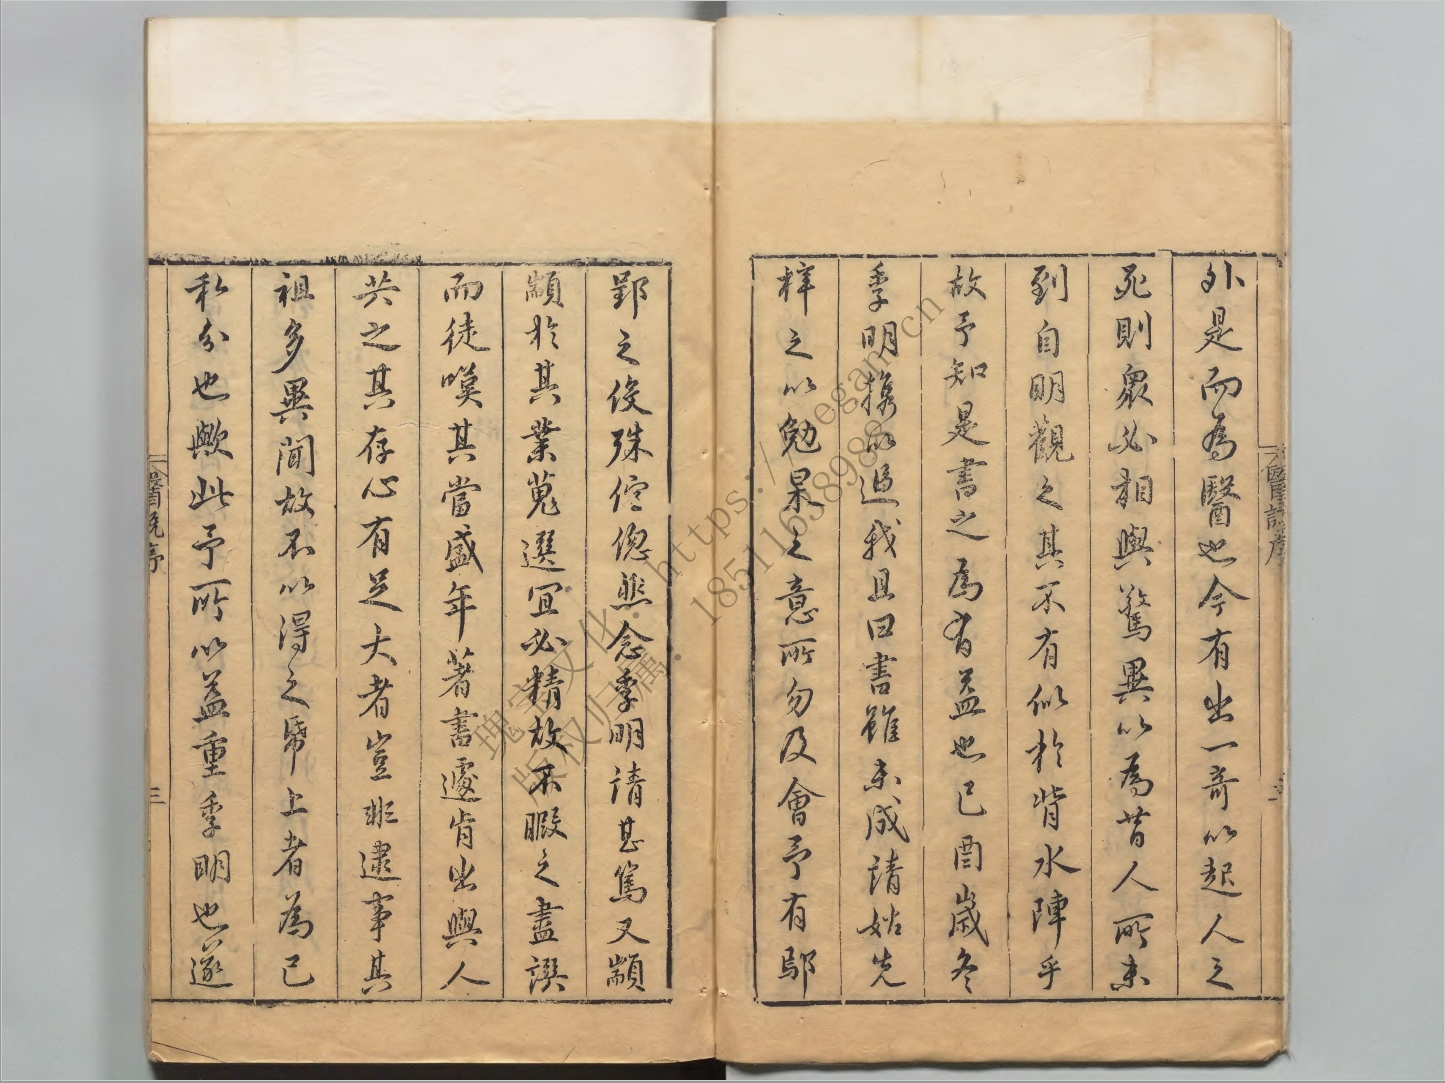 外是而為醫也今有出一奇以起人之
死則衆必相與驚異以為昔人所未
到自明觀之其不有似於背水陣乎
故予知是書之為有益也已酉歲冬
季明攜以過我且曰書雖未成請姑先
梓之以勉杲之意所勿及會予有鄢
郢之役殊倥傯然念季明請甚篤又顓
顓於其業蒐選宜必精故不暇之盡譔
而徒嘆其當盛年著書遽肯出與人
共之其存心有足大者豈非逮事其
祖多異聞故不以得之帋上者為己
私分也歟此予所以益重季明也遂
醫說序
三
瑰宝文化:https://
版权归属:18511638989